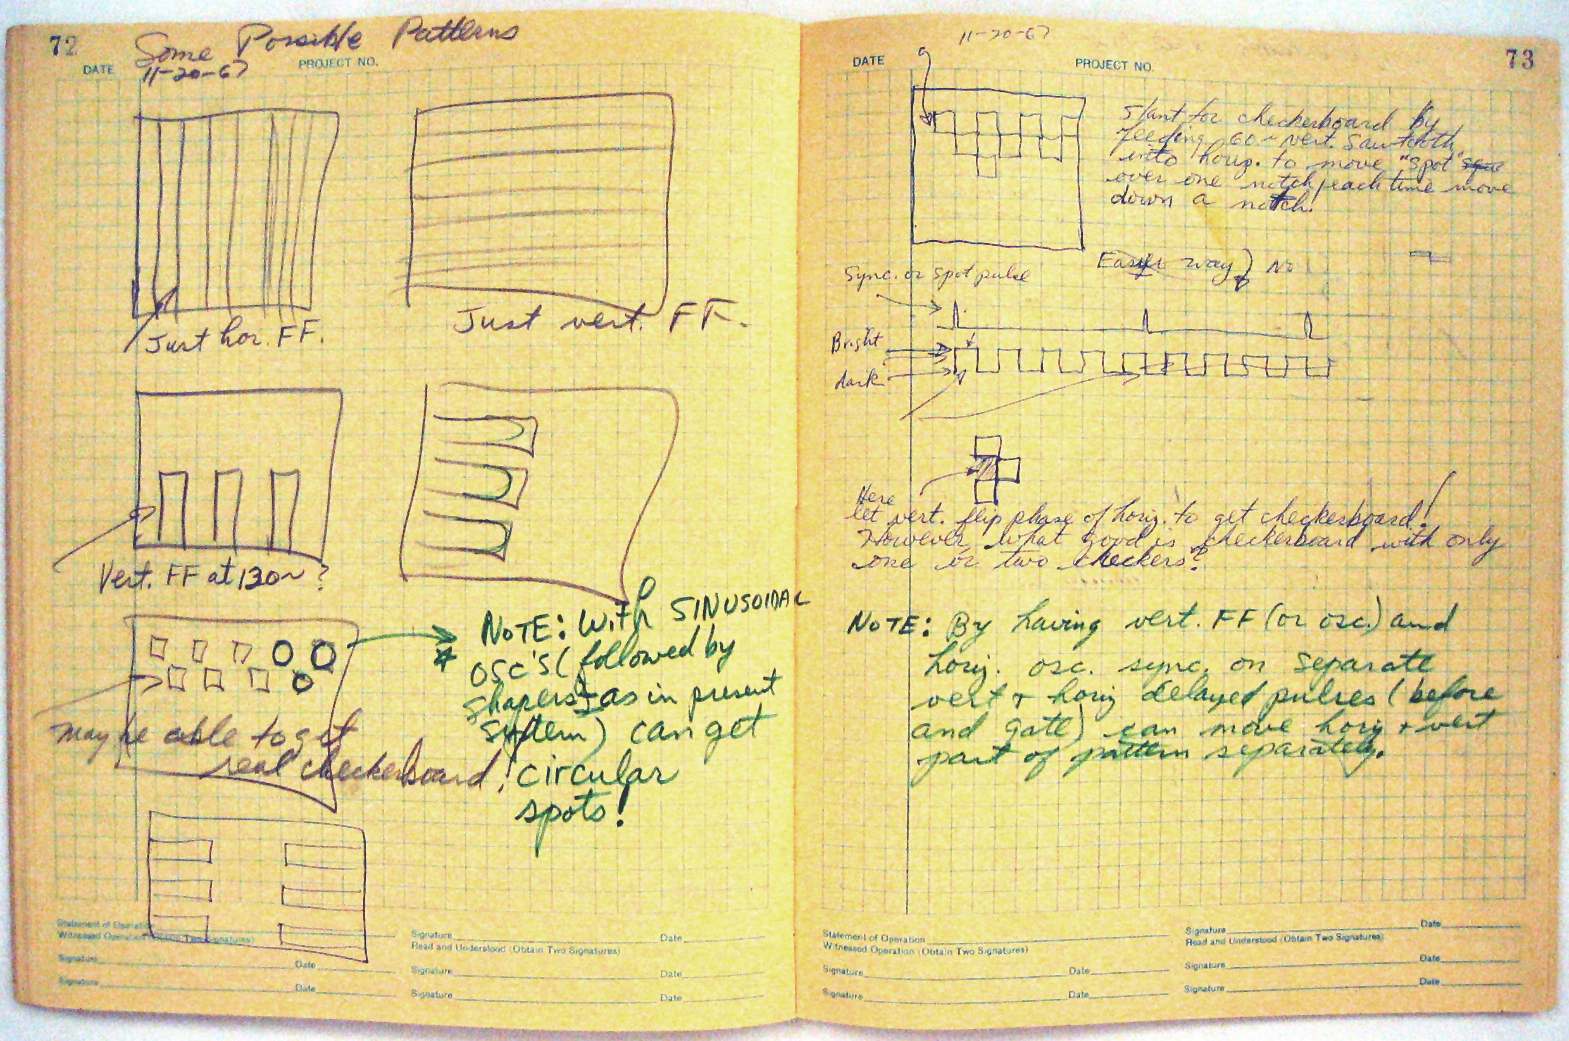 72
Some Possible Patterns
DATE 11-20-67 PROJECT NO.
Just hor. FF.
Just vert. FF.
Vert. FF at 130~?
NOTE: With SINUSOIDAL
OSC'S (followed by
shapers as in present
system) can get
circular
spots!
may be able to get
real checkerboard!
Statement of Operation
Witnessed Operation (Obtain Two Signatures)
Signature Date
Signature Date
Signature Date
Read and Understood (Obtain Two Signatures)
Signature Date
Signature Date
11-20-67
DATE PROJECT NO. 73
Slant for checkerboard by
feeding 60~ vert. sawtooth
into horiz. to move "spot"
over one notch each time move
down a notch!
Easier way} No
Sync. or spot pulse
Bright
dark
Here
let vert. flip phase of horiz. to get checkerboard!
However, what good is checkerboard with only
one or two checkers?
NOTE: By having vert. FF (or osc.) and
horiz. osc. sync. on separate
vert + horiz delayed pulses (before
and gate) can move horiz + vert
part of pattern separately.
Statement of Operation
Witnessed Operation (Obtain Two Signatures)
Signature Date
Signature Date
Signature Date
Read and Understood (Obtain Two Signatures)
Signature Date
Signature Date